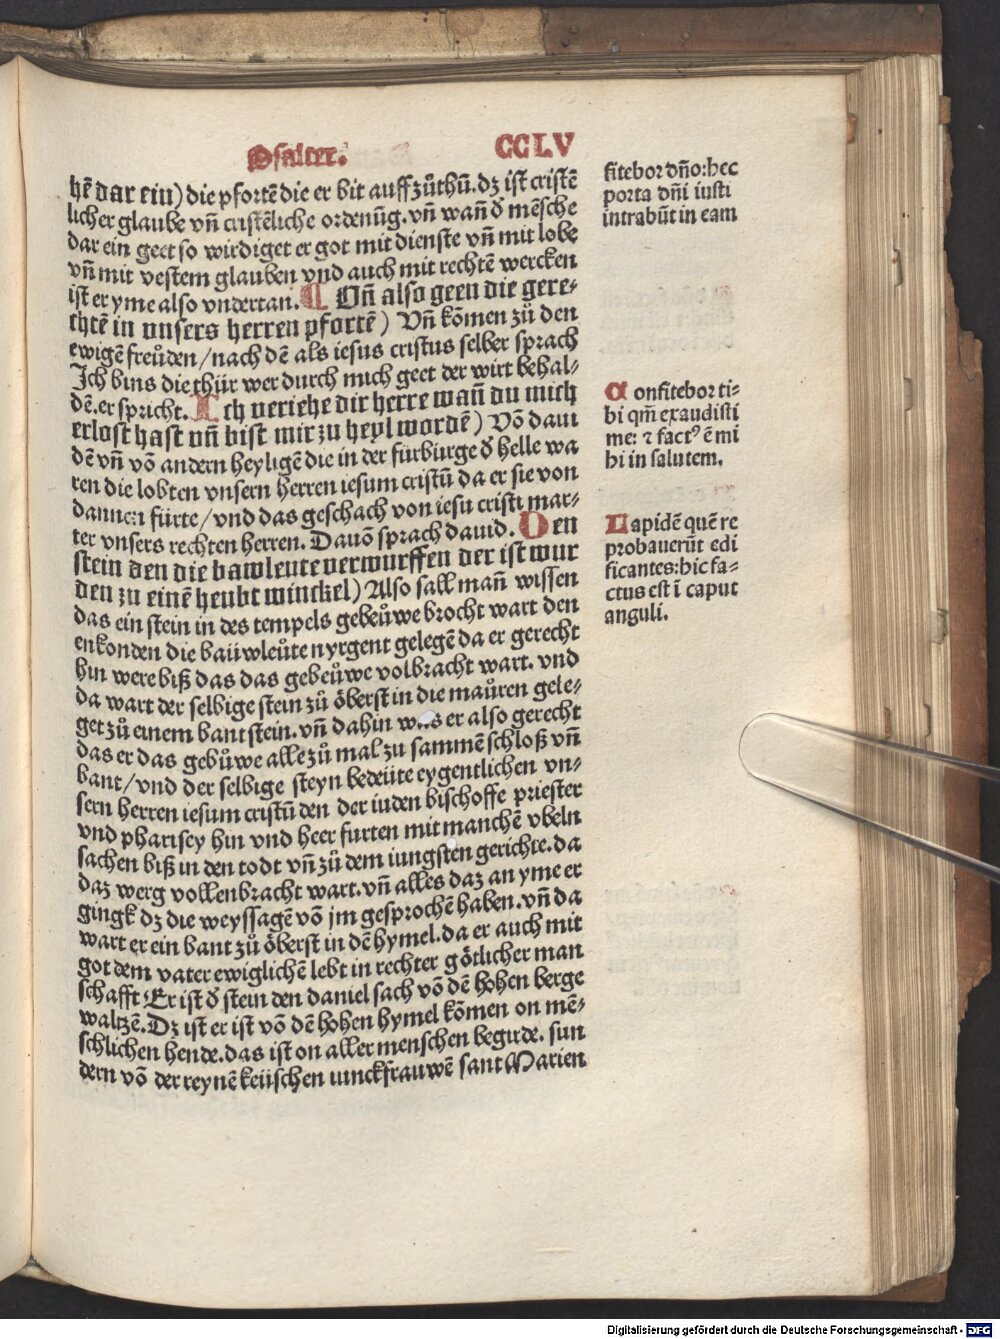 Psalter. CCLV
hē dar ein) die pfortē die er bit auff zůthū. dz ist cristē
licher glaube vn̄ cristēliche ordenūg. vn̄ wan̄ d̕ mēsche
dar ein geet so wirdiget er got mit dienste vn̄ mit lobe
vn̄ mit vestem glauben vnd auch mit rechtē wercken
ist er yme also vndertan. ¶ Vn̄ also geen die gere⸗
chtē in vnsers herren pfortē) Vn̄ kōmen zů den
ewigē freůden/nach dē als iesus cristus selber sprach
Ich bins die thür wer durch mich geet der wirt behal⸗
dē. er spricht. Ich veriehe dir herre wan̄ du mich
erlost hast vn̄ bist mir zu heyl wordē) Vō daui
dē vn̄ vō andern heyligē die in der fürbürge d̕ helle wa
ren die lobten vnsern herren iesum cristū da er sie von
dannen fürte/vnd das geschach von iesu cristi mar⸗
ter vnsers rechten herren. Dauō sprach dauid. Den
stein den die bawleute verwurffen der ist wur
den zu einē heubt winckel) Also sall man̄ wissen
das ein stein in des tempels gebeůwe brocht wart den
enkonden die baüwleůte nyrgent gelegē da er gerecht
hin were biß das das gebeůwe volbracht wart. vnd
da wart der selbige stein zů ôberst in die maůren gele⸗
get zů einem bantstein. vn̄ dahin was er also gerecht
das er das gebůwe alle zů mal zu sammē schloß vn̄
bant/vnd der selbige steyn bedeüte eygentlichen vn⸗
sern herren iesum cristū den der iuden bischoffe priester
vnd pharisey hin vnd heer furten mit manchē vbeln
sachen biß in den todt vn̄ zů dem iungsten gerichte. da
daz werg vollenbracht wart. vn̄ alles daz an yme er
gingk dz die weyssagē vō jm gesprochē haben. vn̄ da
wart er ein bant zů ôberst in dē hymel. da er auch mit
got dem vater ewiglichē lebt in rechter gôtlicher man
schafft Er ist d̕ stein den daniel sach vō dē hohen berge
waltzē. Dz ist er ist vō dē hohen hymel kōmen on mē⸗
schlichen hende. das ist on aller menschen begirde. sun
dern vō der reynē keüschen iunckfrauwē sant Marien
fitebor dn̄o: hec
porta dn̄i iusti
intrabūt in eam
Confitebor ti⸗
bi qm̄ exaudisti
me: ⁊ factꝰ ē mi
hi in salutem.
Lapidē quē re
probauerūt edi
ficantes: hic fa⸗
ctus est ī caput
anguli.
Digitalisierung gefördert durch die Deutsche Forschungsgemeinschaft - DFG